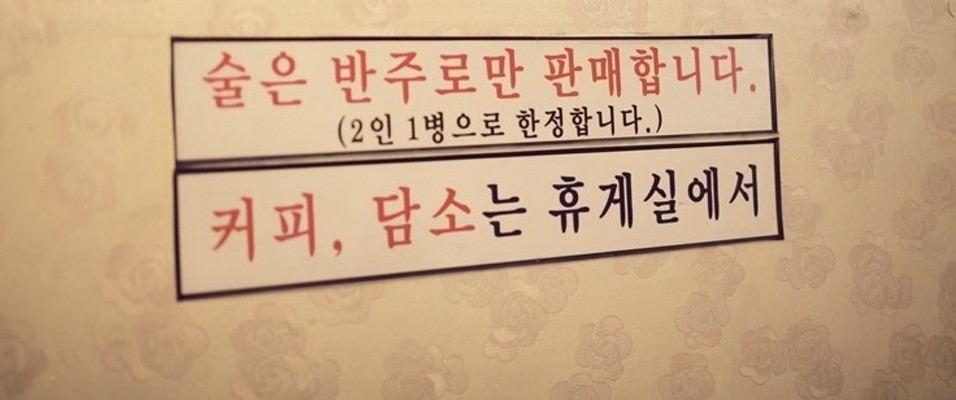 술은 반주로만 판매합니다.
(2인 1병으로 한정합니다.)
커피, 담소는 휴게실에서